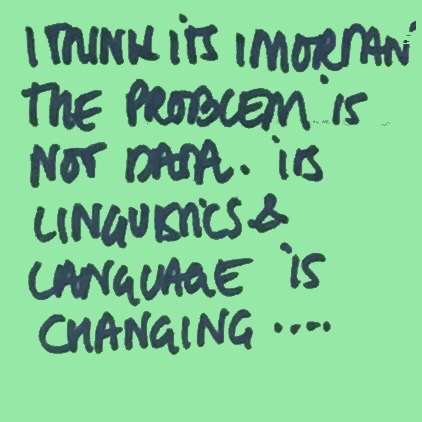 I THINK ITS IMORTAN
THE PROBLEM IS
NOT DATA. ITS
LINGUISTICS &
LANGUAGE IS
CHANGING ....